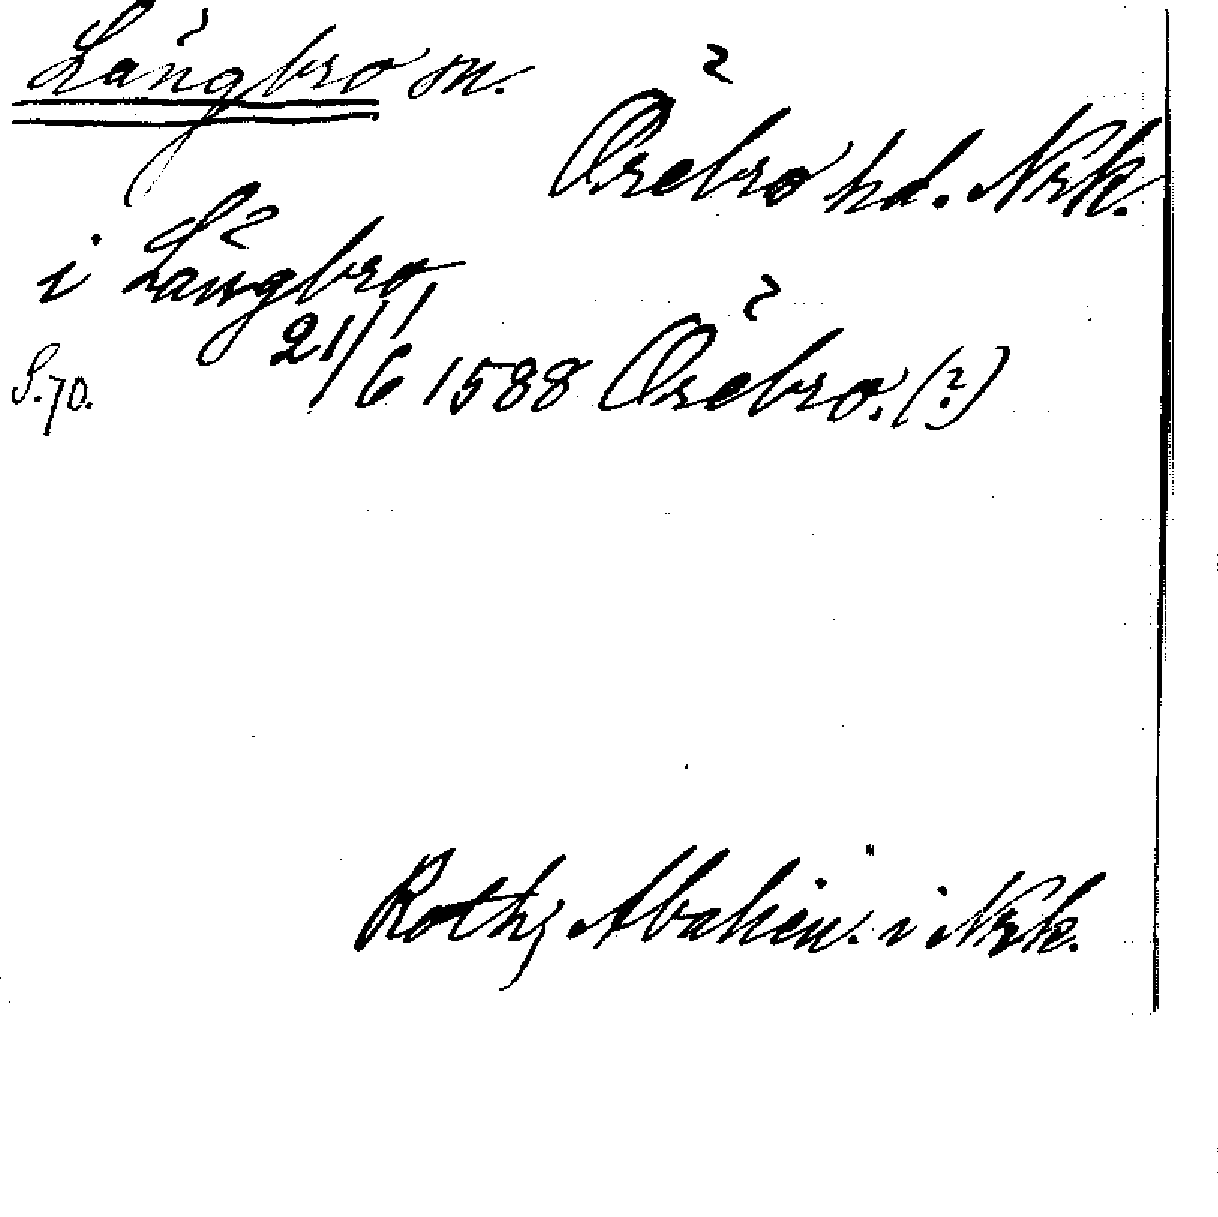 Långbro sn.
Örebro hd. Nrk.
i Långbro
21/6 1588 Örebro. (?)
S. 70.
Roth, i Nrk.